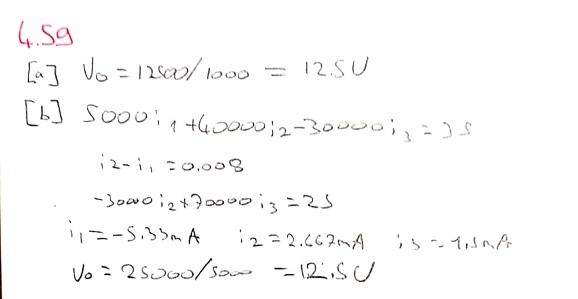 4.59
[a] V₀ = 12500/1000 = 12.5V
[b] 5000i₁+40000i₂-30000i₃ = 35
i₂-i₁ = 0.008
-3000i₂+70000i₃ = 25
i₁ = -5.33mA i₂ = 2.667mA i₃ = 1.5mA
V₀ = 25000/5000 = 12.5V